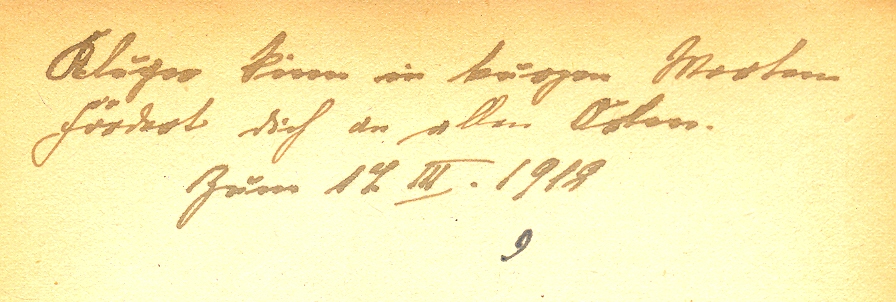 Kluger Sinn in kurzen Worten
Fördert dich an allen Orten.
Zum 17 III. 1912
9